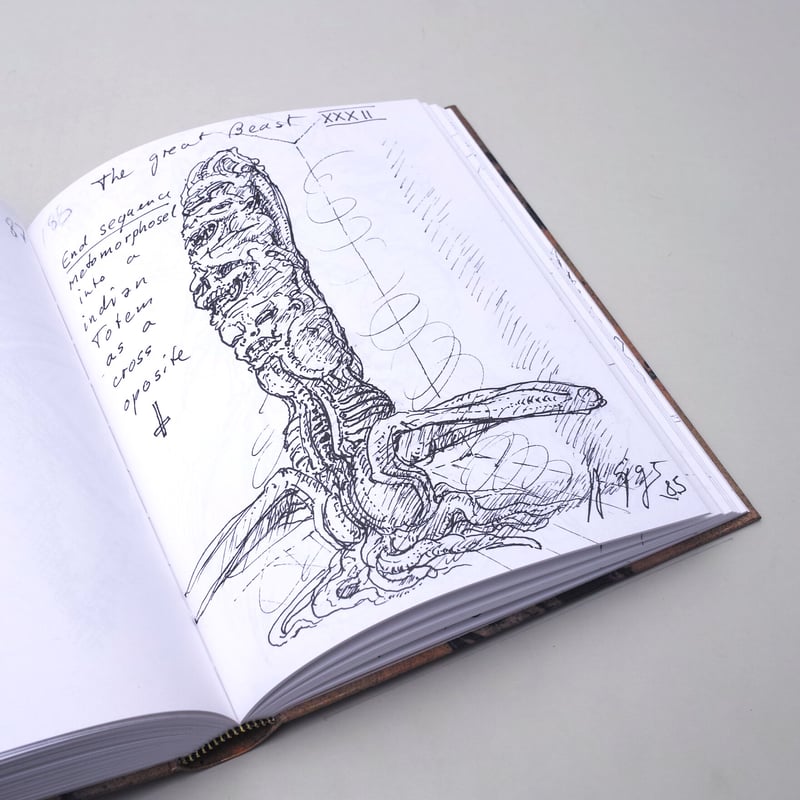 The great Beast XXXII
End sequence
Metamorphosel
into a
indian
Totem
as a
cross
oposite
85